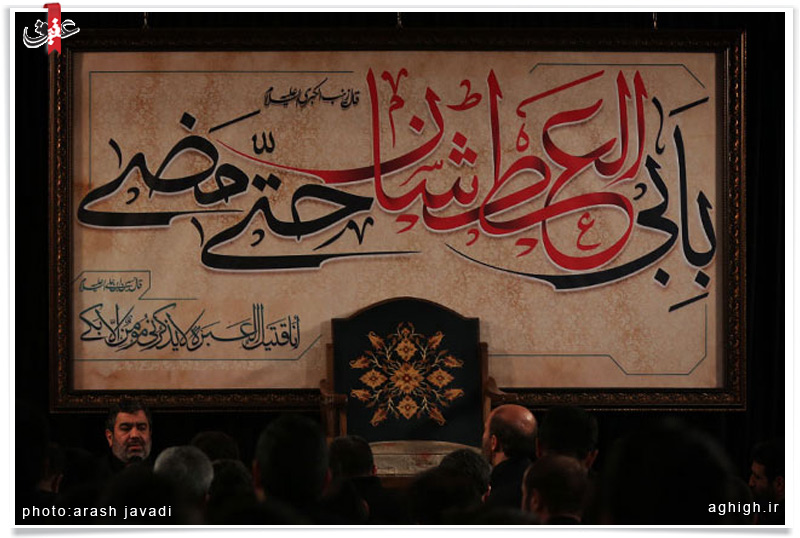 عقیق
قال زینب الکبری علیها السلام
بِاَبی العطشان حتّی مضی
اَنا قتیل العبرة لا یذکرنی مؤمن الا بکی
photo:arash javadi
aghigh.ir